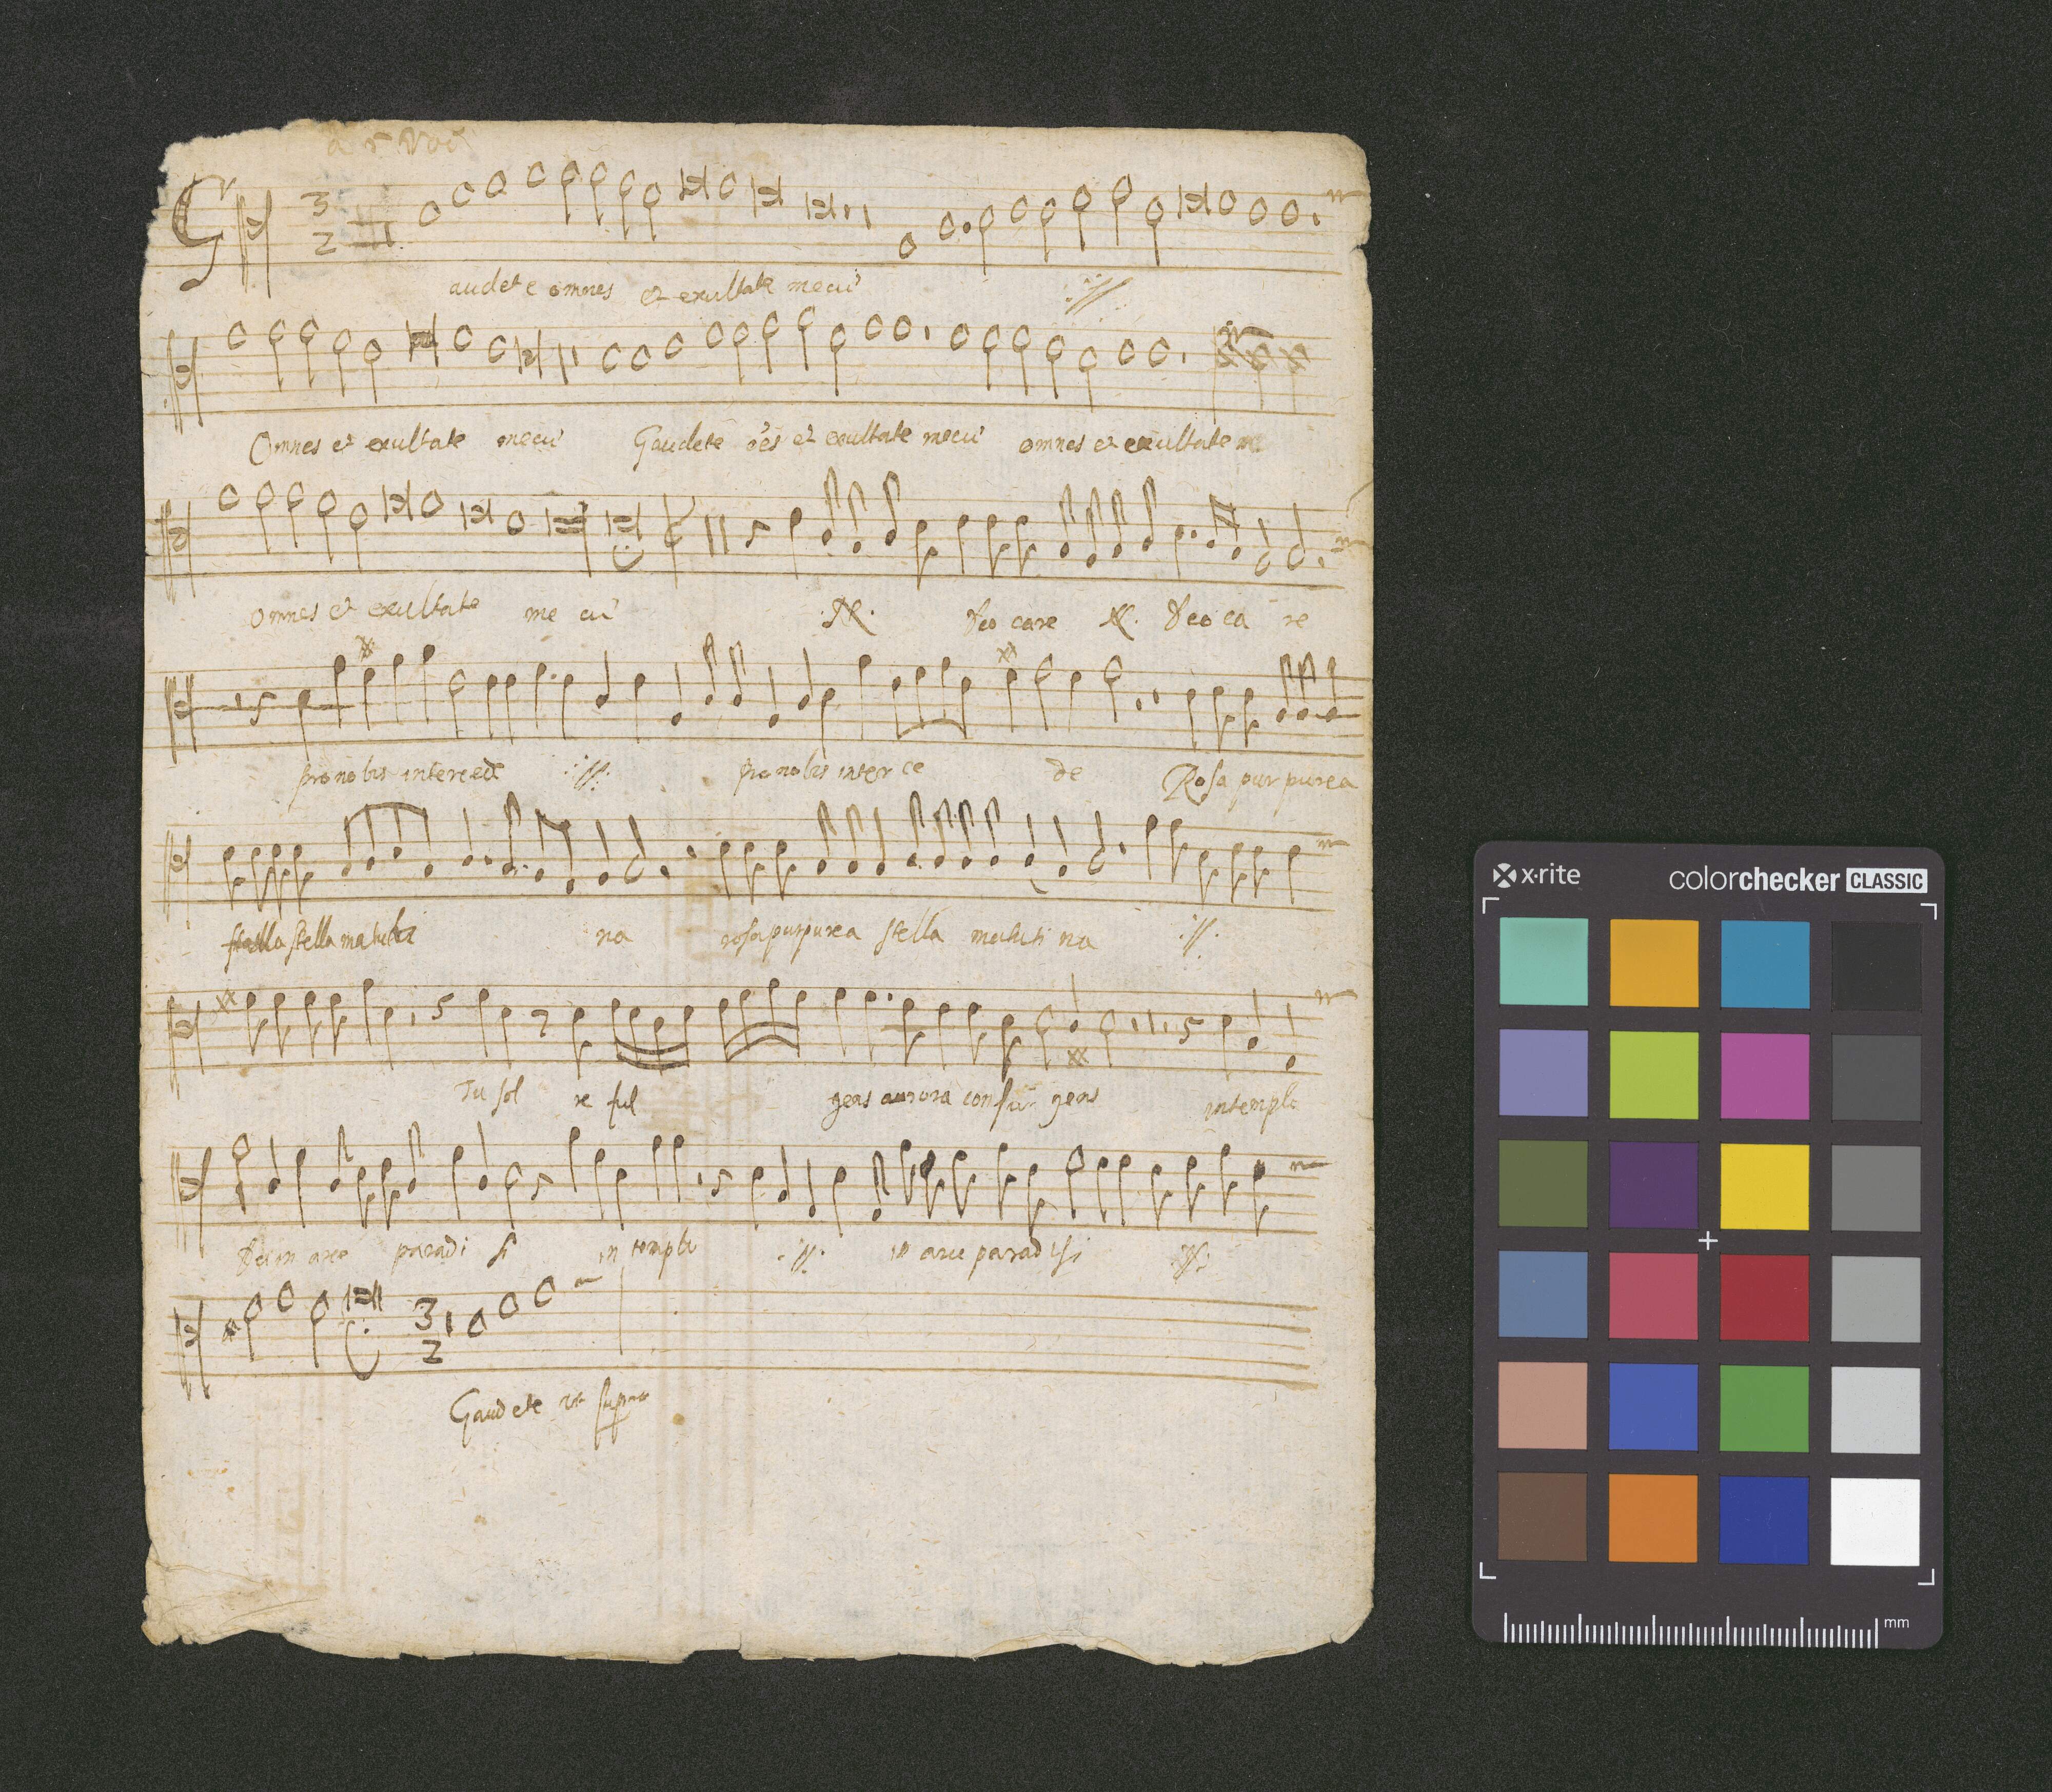 a 5 Voci
Gaudete omnes et exultate mecu
Omnes et exultate mecu Gaudete oes et exultate mecu omnes et exultate me
omnes et exultate me cu .N. Deo care N. Deo ca re
pro nobis intercede pro nobis inter ce de Rosa pur purea
stella stella matuti na rosa purpurea stella matuti na
Tu sol re ful gens aurora consur gens in templo
Dei in arce paradi si in templo in arce paradisi
3
2
Gaudete ut supra
x·rite colorchecker CLASSIC
mm